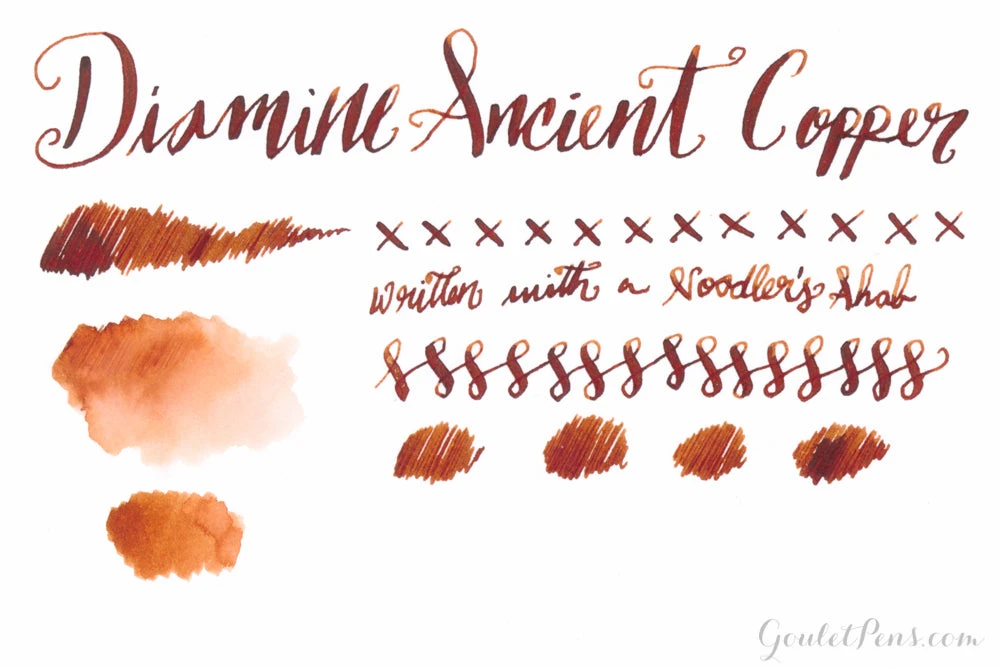 Diamine Ancient Copper
x x x x x x x x x x x x
written with a Noodler's Ahab
GouletPens.com